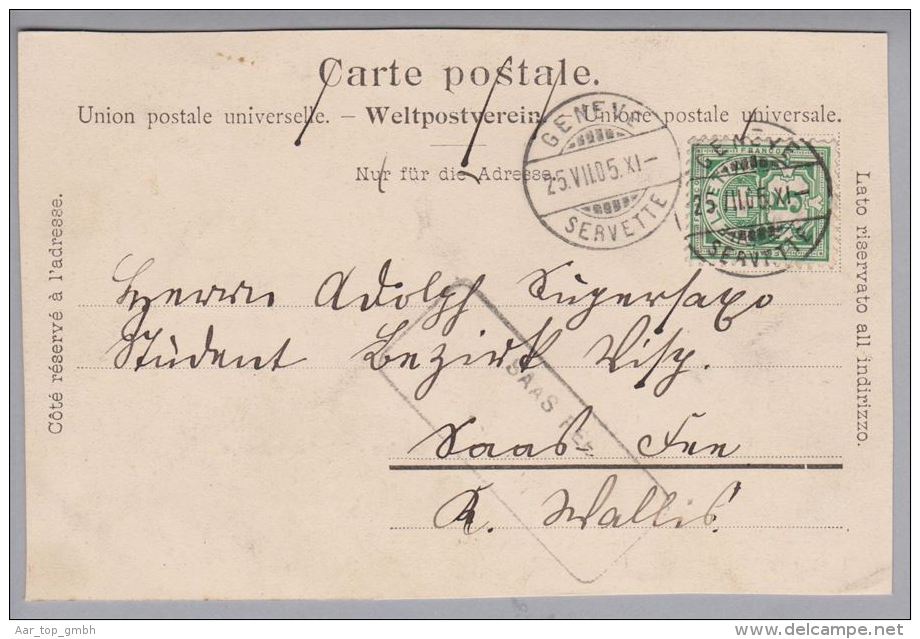 Carte postale.
Union postale universelle. – Weltpostverein. – Unione postale universale.
Nur für die Adresse.
GENEVE
25.VII.05.XI–
SERVETTE
FRANCO
GENEVE
25.VII.05.XI–
SERVETTE
5
Côté réservé à l'adresse.
Lato riservato all indirizzo.
Herrn Adolph Supersaxo
Student Bezirk Visp.
SAAS FEE
Saas Fee
K. Wallis.
Aar_top_gmbh